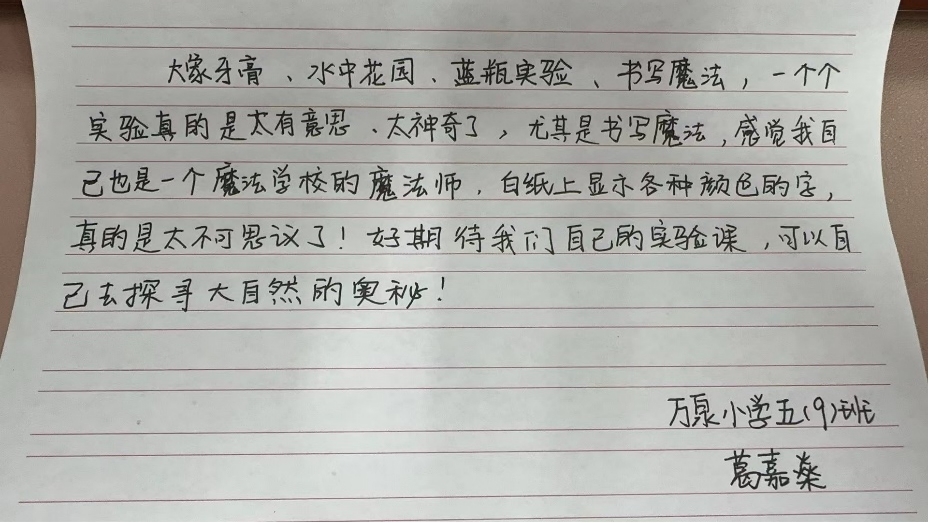 大象牙膏、水中花园、蓝瓶实验、书写魔法，一个个
实验真的是太有意思、太神奇了，尤其是书写魔法，感觉我自
己也是一个魔法学校的魔法师，白纸上显示各种颜色的字，
真的是太不可思议了！好期待我们自己的实验课，可以自
己去探寻大自然的奥秘！
万泉小学五(9)班
葛嘉燊